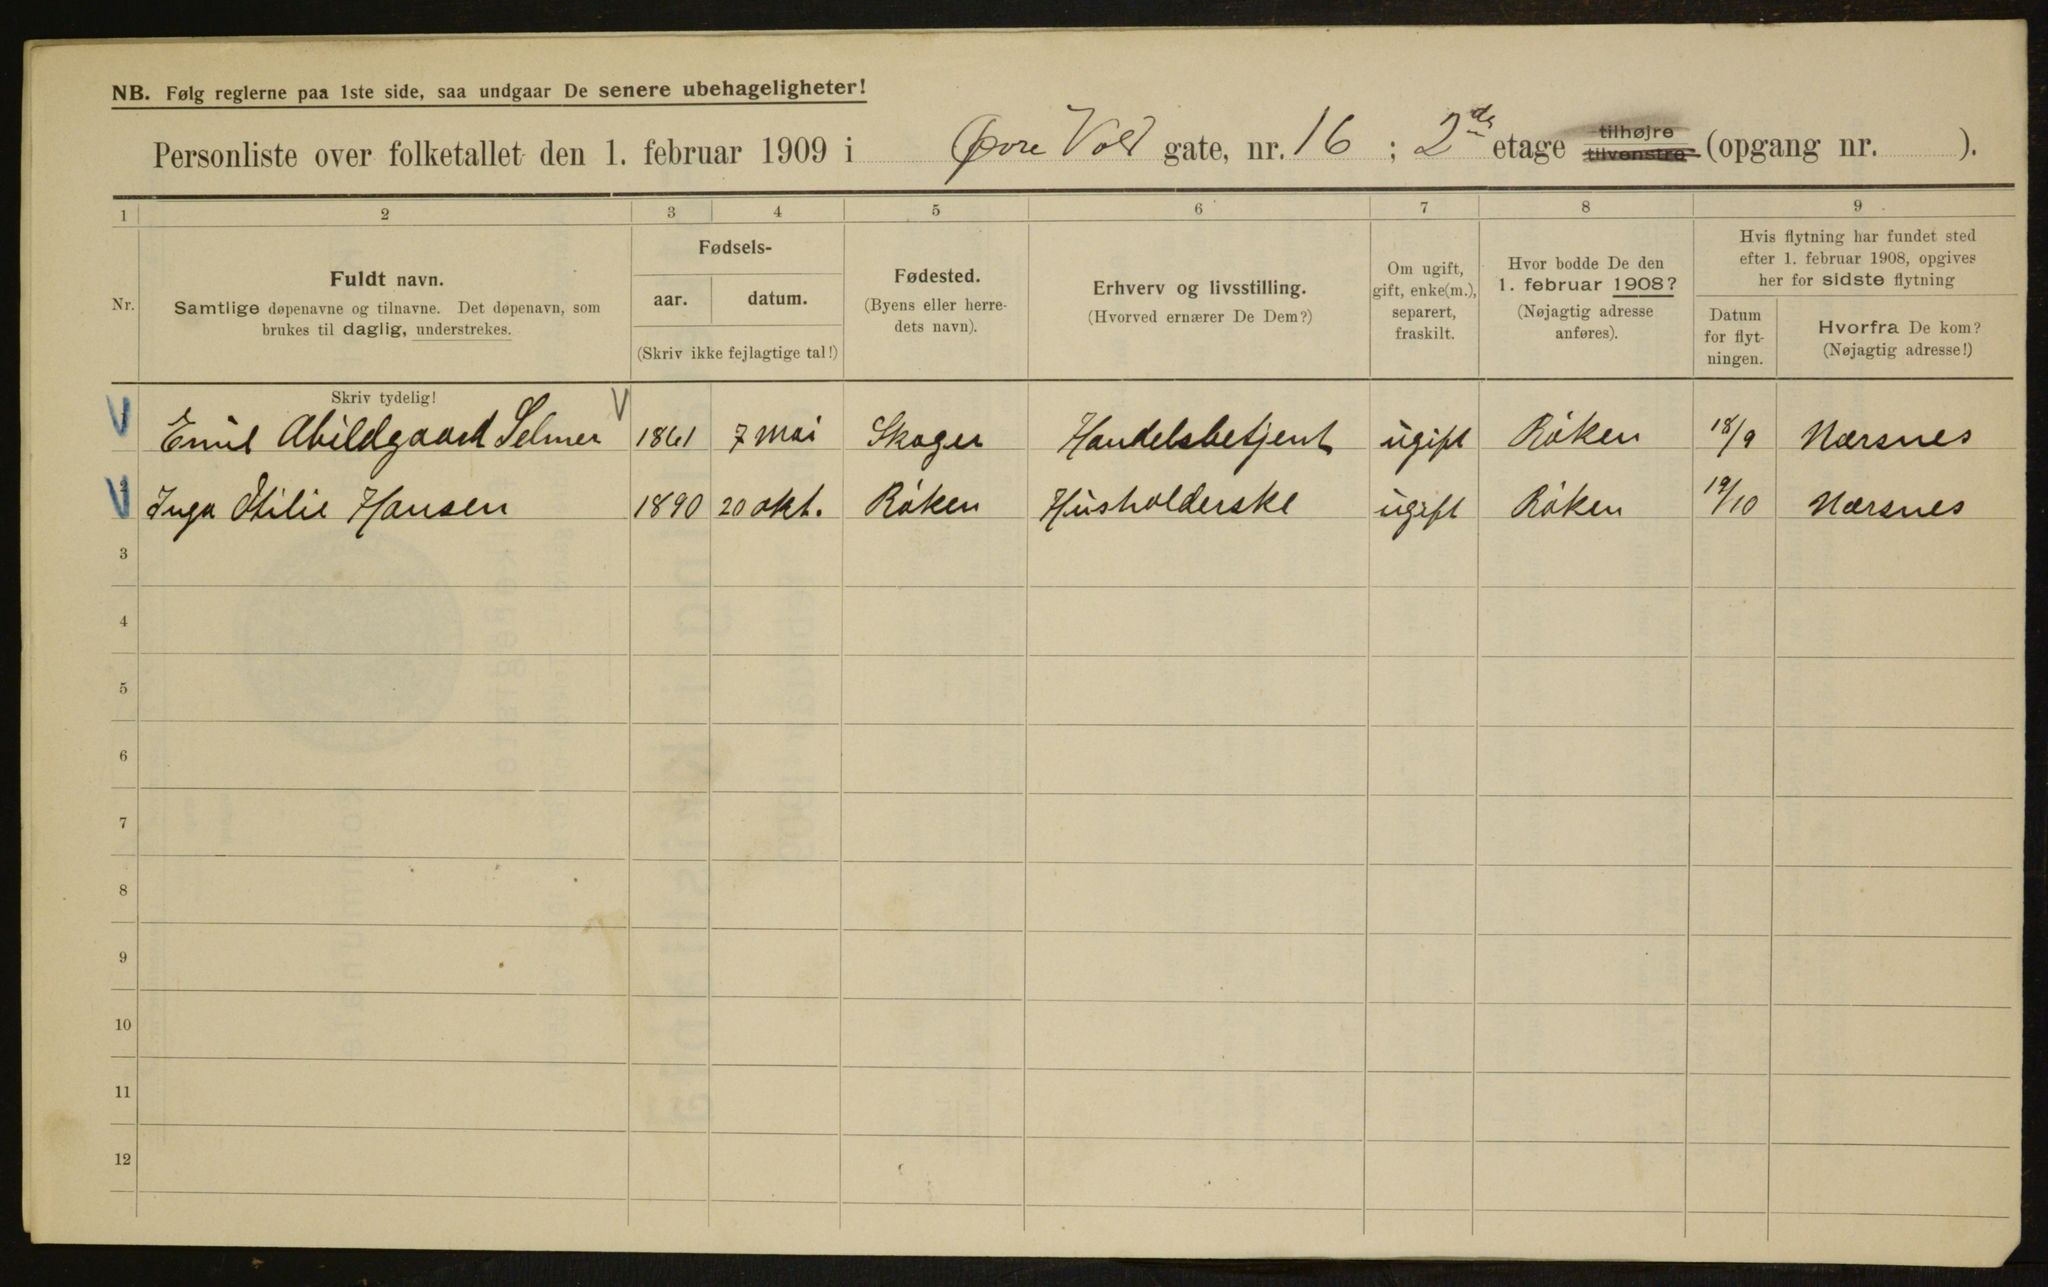 NB. Følg reglerne paa 1ste side, saa undgaar De senere ubehageligheter!
Personliste over folketallet den 1. februar 1909 i Øvre Vold gate, nr. 16 ; 2den etage tilhøjre tilvenstre (opgang nr. ).
1 2 3 4 5 6 7 8 9
Nr.
Fuldt navn.
Samtlige døpenavne og tilnavne. Det døpenavn, som
brukes til daglig, understrekes.
Fødsels-
aar. datum.
(Skriv ikke fejlagtige tal!)
Fødested.
(Byens eller herre-
dets navn).
Erhverv og livsstilling.
(Hvorved ernærer De Dem?)
Om ugift,
gift, enke(m.),
separert,
fraskilt.
Hvor bodde De den
1. februar 1908?
(Nøjagtig adresse
anføres).
Hvis flytning har fundet sted
efter 1. februar 1908, opgives
her for sidste flytning
Datum
for flyt-
ningen.
Hvorfra De kom?
(Nøjagtig adresse!)
Skriv tydelig!
1 Emil Abildgaard Selmer 1861 7 Mai Skoger Handelsbetjent ugift Røken 18/9 Nærsnes
2 Inga Otilie Hansen 1890 20 okt. Røken Husholderske ugift Røken 19/10 Nærsnes
3
4
5
6
7
8
9
10
11
12